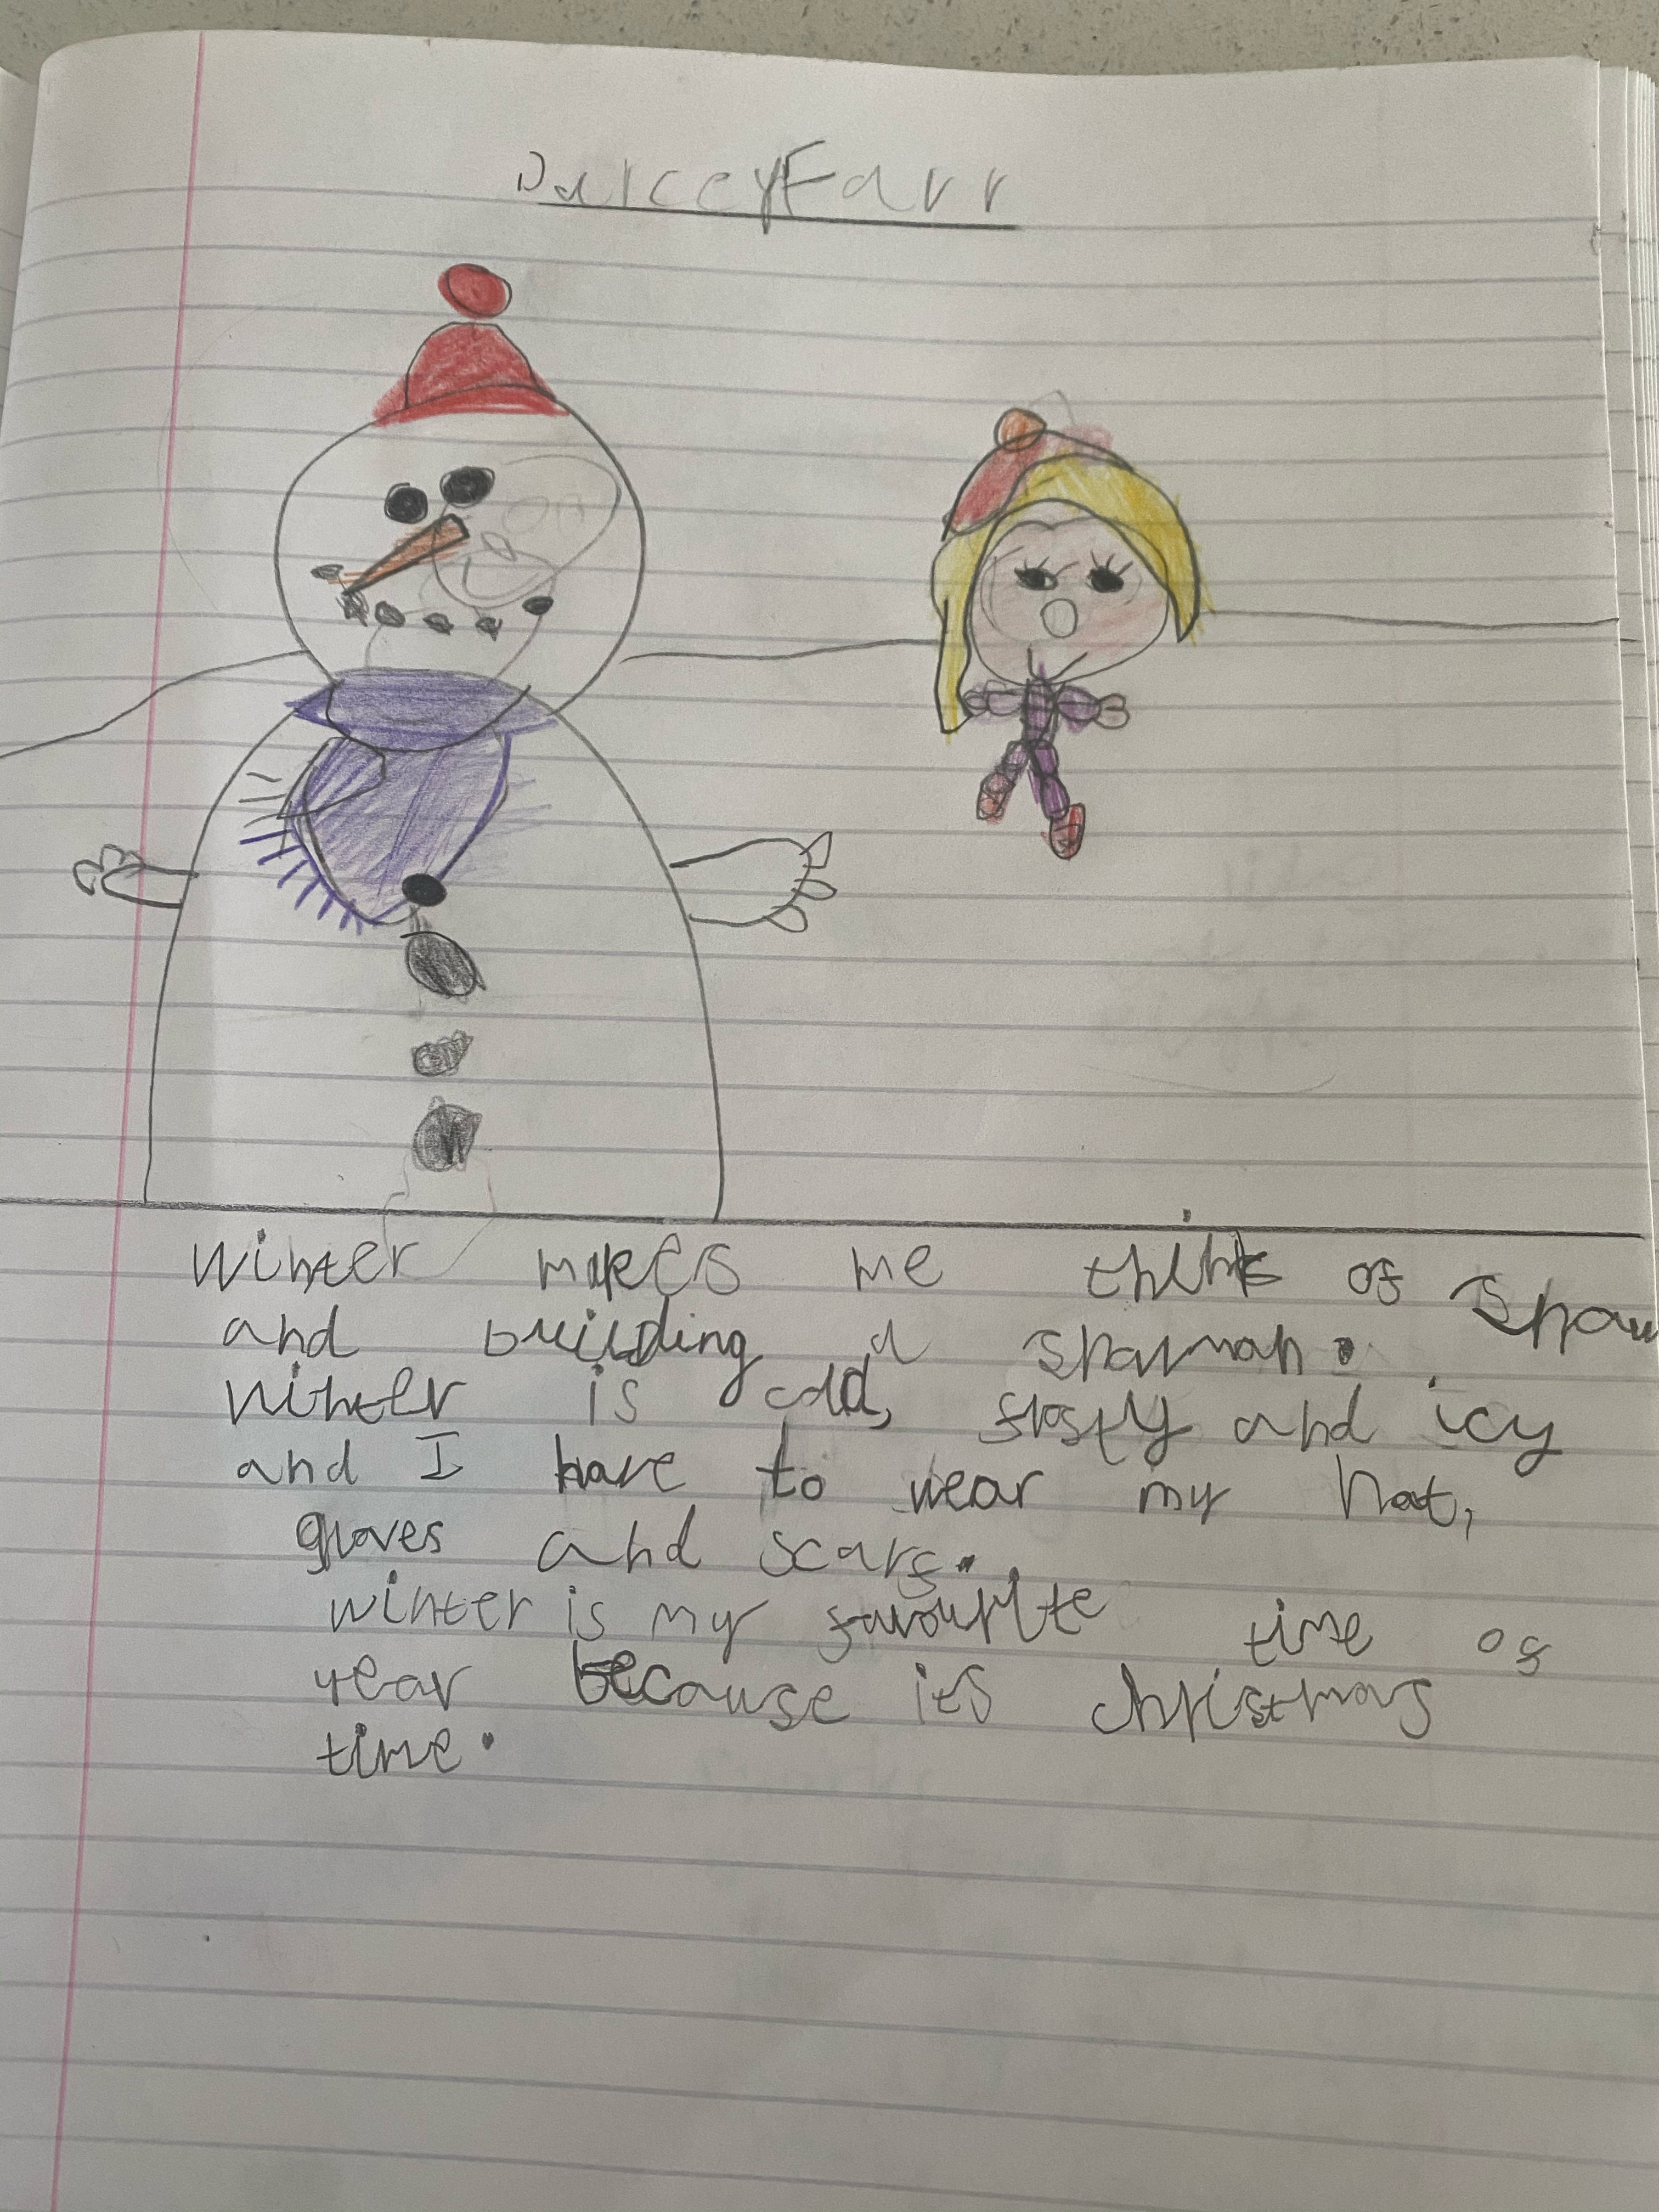 Darcey Farr
Winter makes me think of snow
and building a snowman.
Winter is cold, frosty and icy
and I have to wear my hat,
gloves and scarf.
winter is my favourite time of
year because its christmas
time.